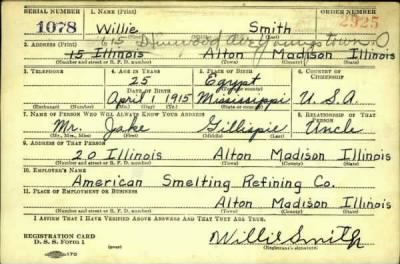 SERIAL NUMBER 1. NAME (Print) ORDER NUMBER
1078 Willie Smith 2925
(First) (Middle) (Last)
2. ADDRESS (Print)
15 Illinois Alton Madison Illinois
(Number and street or R. F. D. number) (Town) (County) (State)
3. TELEPHONE 4. AGE IN YEARS 5. PLACE OF BIRTH 6. COUNTRY OF CITIZENSHIP
25 Egypt
DATE OF BIRTH (Town or county)
April 1915 Mississippi U.S.A.
(Exchange) (Number) (Mo.) (Day) (Yr.) (State or country)
7. NAME OF PERSON WHO WILL ALWAYS KNOW YOUR ADDRESS 8. RELATIONSHIP OF THAT PERSON
Mr. Jake Gillispie Uncle
(Mr., Mrs., Miss) (First) (Middle) (Last)
9. ADDRESS OF THAT PERSON
20 Illinois Alton Madison Illinois
(Number and street or R. F. D. number) (Town) (County) (State)
10. EMPLOYER'S NAME
American Smelting Refining Co.
11. PLACE OF EMPLOYMENT OR BUSINESS
Alton Madison Illinois
(Number and street or R. F. D. number) (Town) (County) (State)
I AFFIRM THAT I HAVE VERIFIED ABOVE ANSWERS AND THAT THEY ARE TRUE.
REGISTRATION CARD
D. S. S. Form 1 Willie Smith
(Registrant's signature)